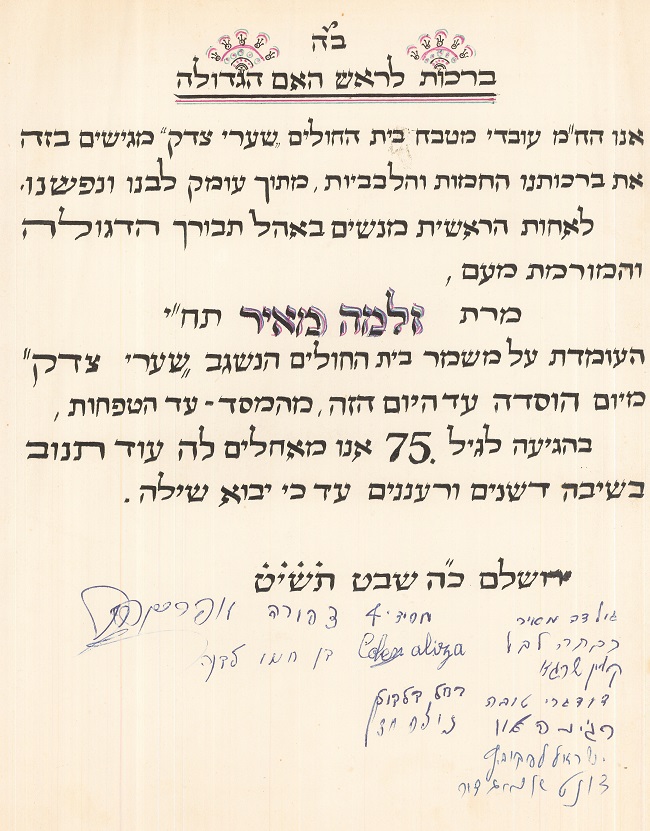 ב״ה
ברכות לראש האם הגדולה
אנו הח״מ עובדי מטבח בית החולים „שערי צדק״ מגישים בזה
את ברכותנו החמות והלבביות, מתוך עומק לבנו ונפשנו.
לאחות הראשית מנשים באהל תבורך הדגולה
והמורמת מעם,
מרת זלמה מאיר תח״י
העומדת על משמר בית החולים הנשגב „שערי צדק״
מיום הוסדה עד היום הזה, מהמסד - עד הטפחות,
בהגיעה לגיל 75. אנו מאחלים לה עוד תנוב
בשיבה דשנים ורעננים עד כי יבוא שילה.
ירושלם כ״ה שבט תשי״ט
צפורה
מאיר
Cohen aliza
בן חמו
רחל
טובה